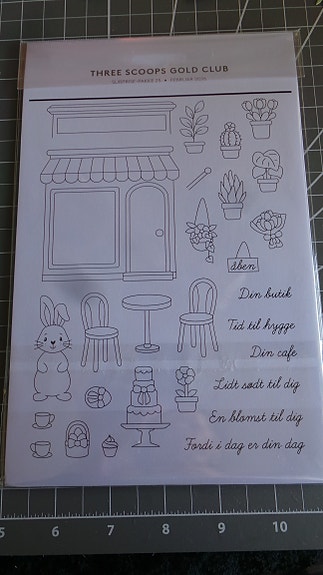 THREE SCOOPS GOLD CLUB
åben
Din butik
Tid til hygge
Din cafe
Lidt sødt til dig
En blomst til dig
Fordi i dag er din dag
5 6 7 8 9 10